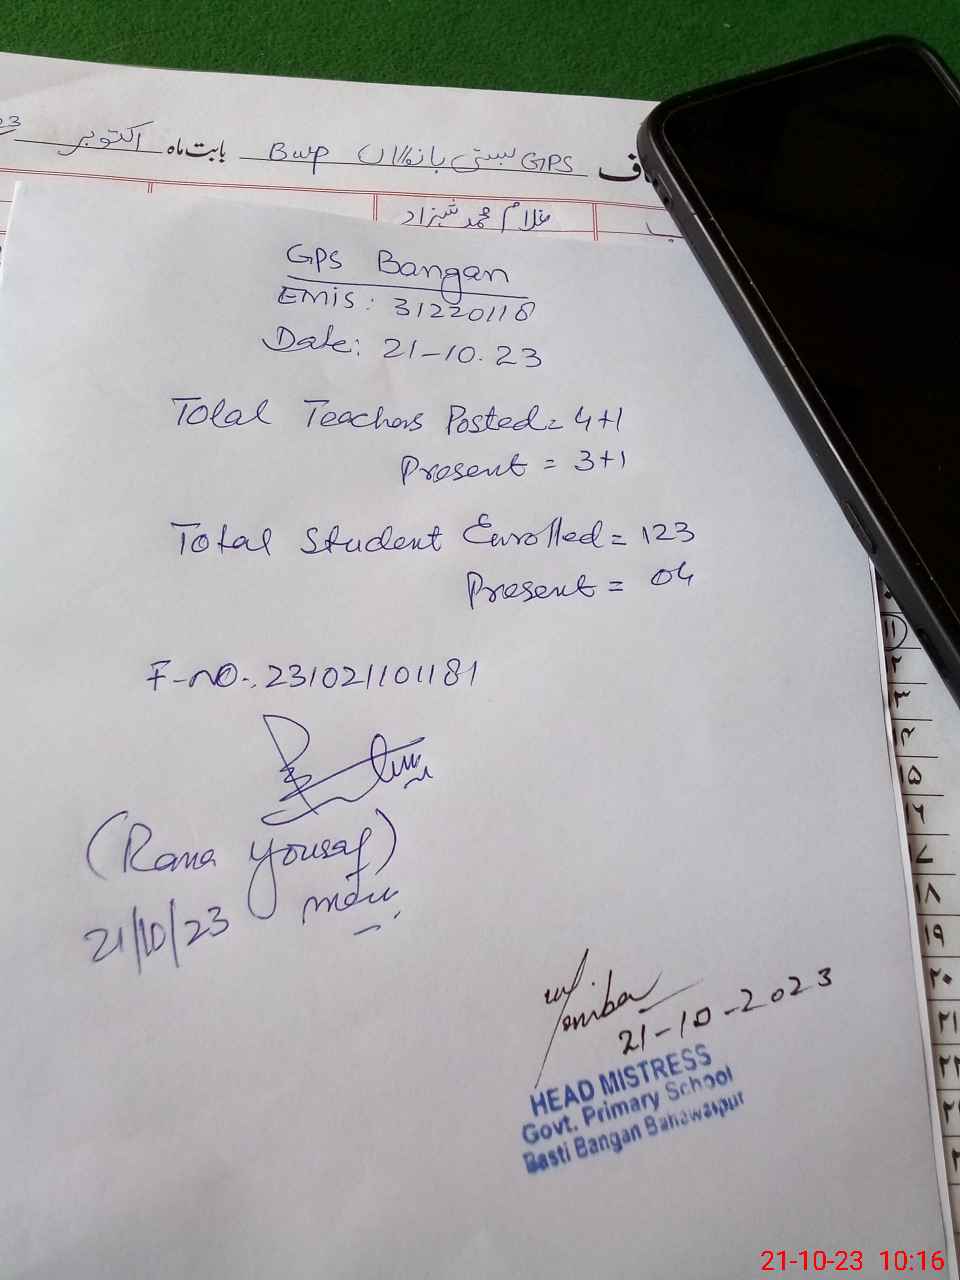 GPS بستی بانگاں Bwp بابت ماہ اکتوبر 23
غلام محمد شہزاد
GPS Bangan
EMIS: 31220118
Date: 21-10.23
Total Teachers Posted = 4+1
Present = 3+1
Total Student Enrolled = 123
Present = 04
F-NO.: 231021101181
(Rana Yousaf)
21/10/23
21-10-2023
HEAD MISTRESS
Govt. Primary School
Basti Bangan Bahawalpur
۱۵
۱۶
۱۷
۱۸
۱۹
۲۰
۲۱
21-10-23 10:16